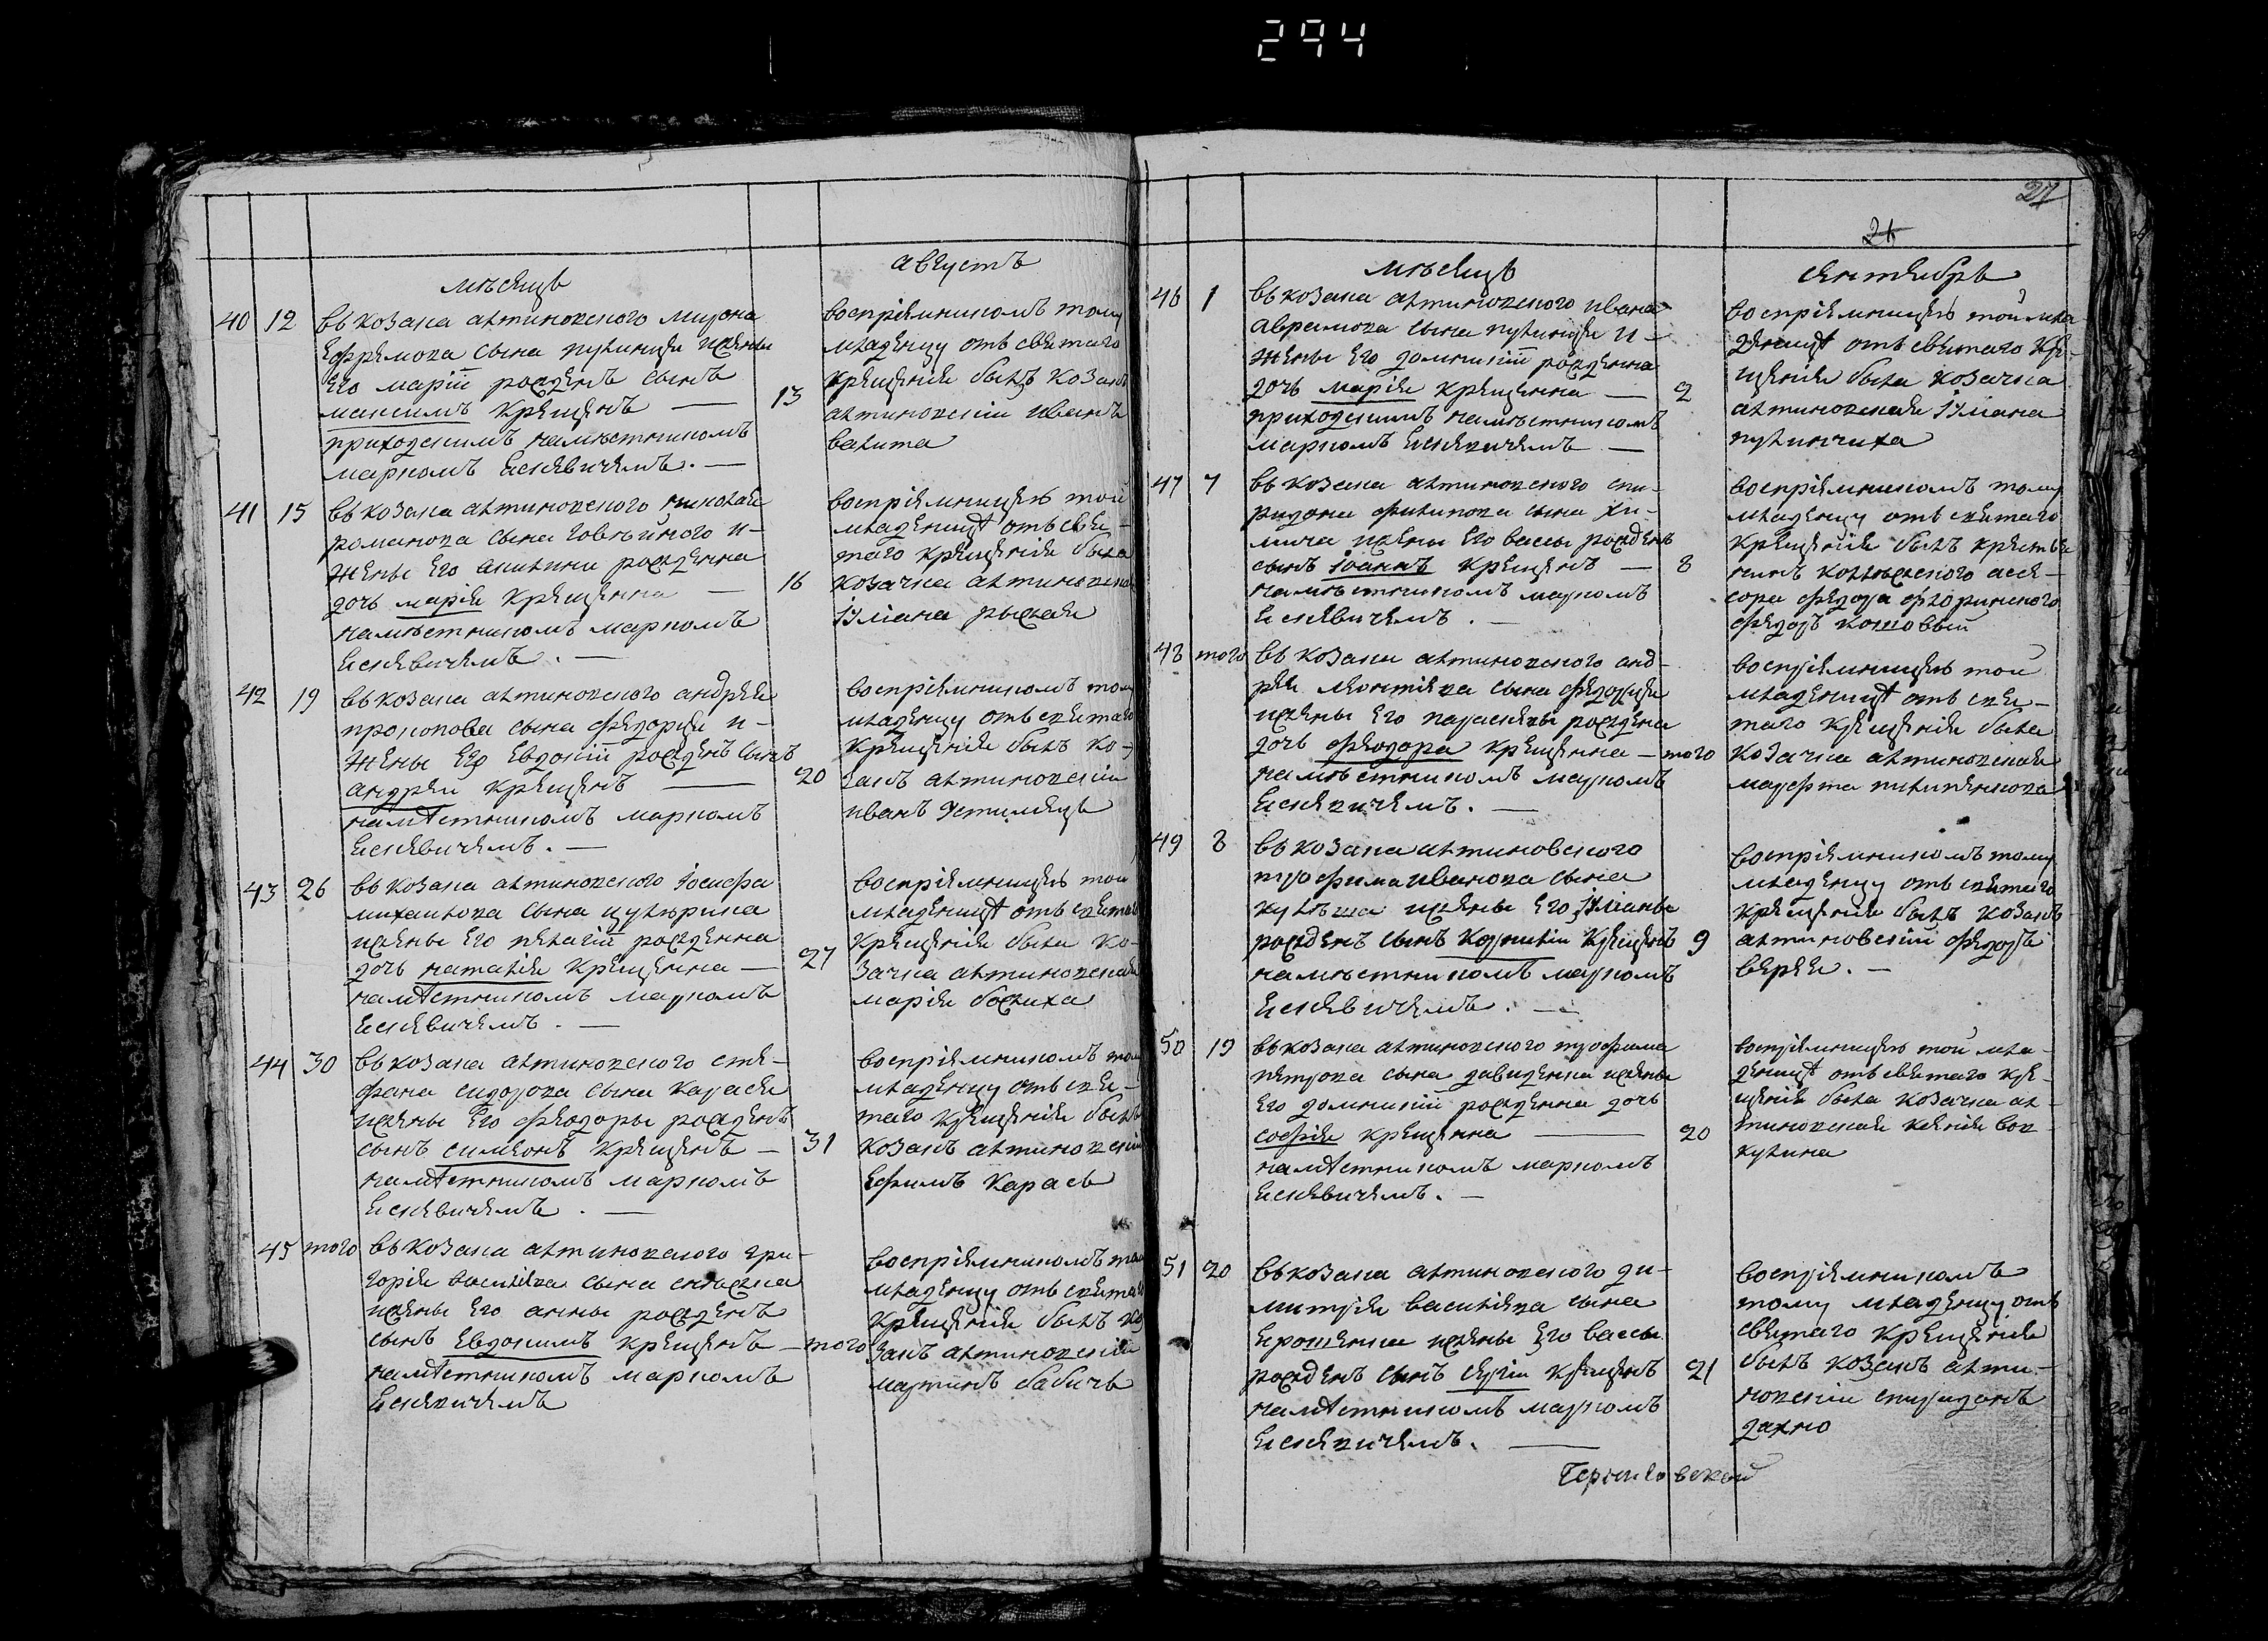 294
мѣсяцъ
августъ
40 12 въ козака алтиновского мирона
ефремова сына пулинця жены
его маріи рожденъ сынъ
максимъ крещенъ — 13
приходскимъ намѣстникомъ
маркомъ Еселевичемъ. —
воспріемникомъ тому
младенцу отъ святаго
крещенія былъ козакъ
алтиновскіи иванъ
валита
41 15 въ козака алтиновского николая
романова сына говѣиного и
жены его акилини рожденна
дочь марія крещенна — 16
намѣстникомъ маркомъ
Еселевичемъ. —
воспріемницею той
младеницѣ отъ свя-
таго крещенія была
козачка алтиновская
Іуліана рыжая
42 19 въ козака алтиновского андрея
прокопова сына федорця и
жены его евдокіи рожденъ сынъ
андреи крещенъ — 20
намѣстникомъ маркомъ
Еселевичемъ. —
воспріемникомъ тому
младенцу отъ святаго
крещенія былъ ко-
закъ алтиновскіи
иванъ устимецъ
43 26 въ козака алтиновского Іосифа
михаилова сына цулѣрика
жены его пелагіи рожденна
дочь наталія крещенна — 27
намѣстникомъ маркомъ
Еселевичемъ. —
воспріемницею той
младеницѣ отъ святаго
крещенія была ко-
зачка алтиновская
марія божиха
44 30 въ козака алтиновского сте-
фана сидорова сына карася
жены его феодоры рожденъ
сынъ симеонъ крещенъ — 31
намѣстникомъ маркомъ
Еселевичемъ. —
воспріемникомъ тому
младенцу отъ свя-
таго крещенія былъ
козакъ алтиновскіи
ефимъ карась
45 того въ козака алтиновского гри-
горія василіева сына
жены его анны рожденъ
сынъ евдокимъ крещенъ — того
намѣстникомъ маркомъ
Еселевичемъ
воспріемникомъ тому
младенцу отъ святаго
крещенія былъ ко
закъ алтиновскіи
мартинъ бабичъ
27
21
мѣсяцъ
сентябрь
46 1 въ козака алтиновского ивана
аврамова сына пулинця и
жены его домникіи рожденна
дочь марія крещенна — 2
приходскимъ намѣстникомъ
маркомъ Еселевичемъ —
воспріемницею той мла
деницѣ отъ святаго кре-
щенія была козачка
алтиновская Іуліана
пулинчиха
47 7 въ козака алтиновского спи-
ридона филипова сына хи-
мича жены его вассы рожденъ
сынъ Іоаннъ крещенъ — 8
намѣстникомъ маркомъ
Еселевичемъ. —
воспріемникомъ тому
младенцу отъ святаго
крещенія былъ крестья
нинъ коллѣжского асе-
сора федора флоринского
федоръ кошовый
48 того въ козака алтиновского анд-
рея леонтіева сына федорця
жены его параскевы рождена
дочь феодора крещенна — того
намѣстникомъ маркомъ
Еселевичемъ. —
воспріемницею той
младеницѣ отъ свя-
таго крещенія была
козачка алтиновская
марфа пилипенкова
49 8 въ козака алтиновского
трофима иванова сына
кулѣша жены его Іуліаны
рожденъ сынъ корнилій крещенъ 9
намѣстникомъ маркомъ
Еселевичемъ. —
воспріемникомъ тому
младенцу отъ святаго
крещенія былъ козакъ
алтиновскіи федоръ
верея. —
50 19 въ козака алтиновского трофима
петрова сына давиденка жены
его домникіи рожденна дочь
софія крещенна — 20
намѣстникомъ маркомъ
Еселевичемъ. —
воспріемницею той мла-
деницѣ отъ святаго кре-
щенія была козачка ал-
тиновская ксенія вов-
кулина
51 20 въ козака алтиновского ди-
митрія василіева сына
ерошенка жены его вассы
рожденъ сынъ сергіи крещенъ 21
намѣстникомъ маркомъ
Еселевичемъ. —
воспріемникомъ
тому младенцу отъ
святаго крещенія
былъ козакъ алти-
новскіи спиридонъ
дахно
Черниговской